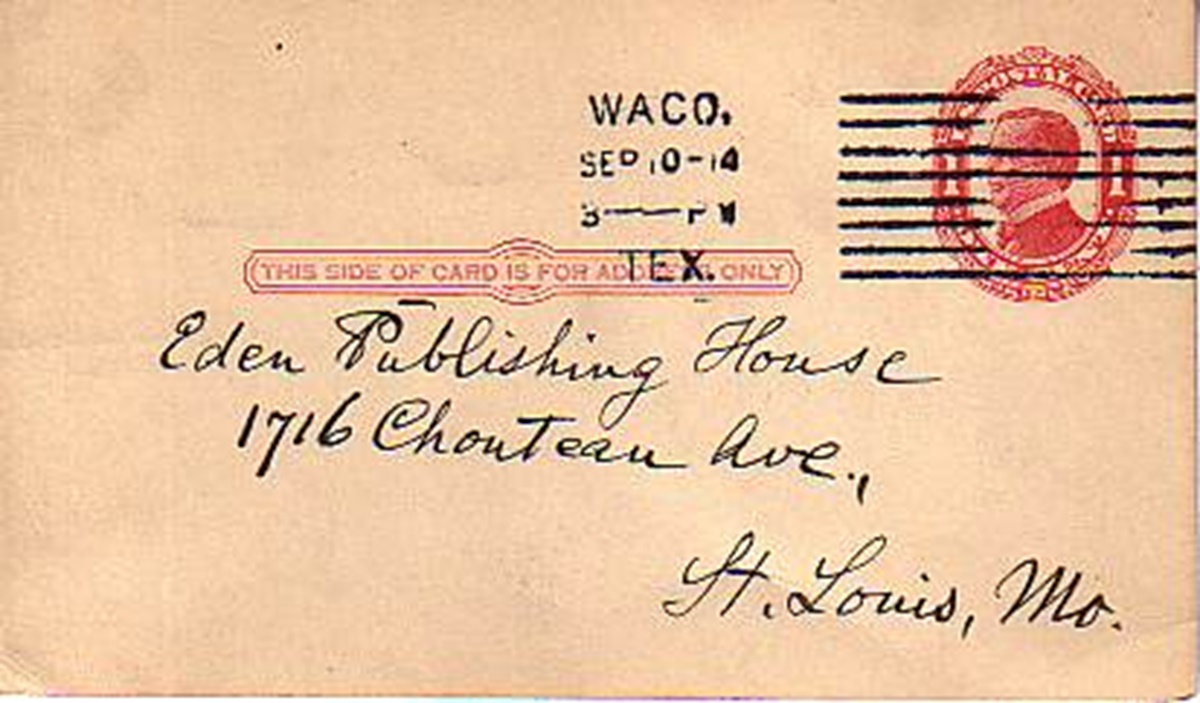 POSTAL CARD
WACO.
SEP 10-14
3 — PM
TEX.
1 1
THIS SIDE OF CARD IS FOR ADDRESS ONLY
Eden Publishing House
1716 Chouteau Ave.,
St. Louis, Mo.